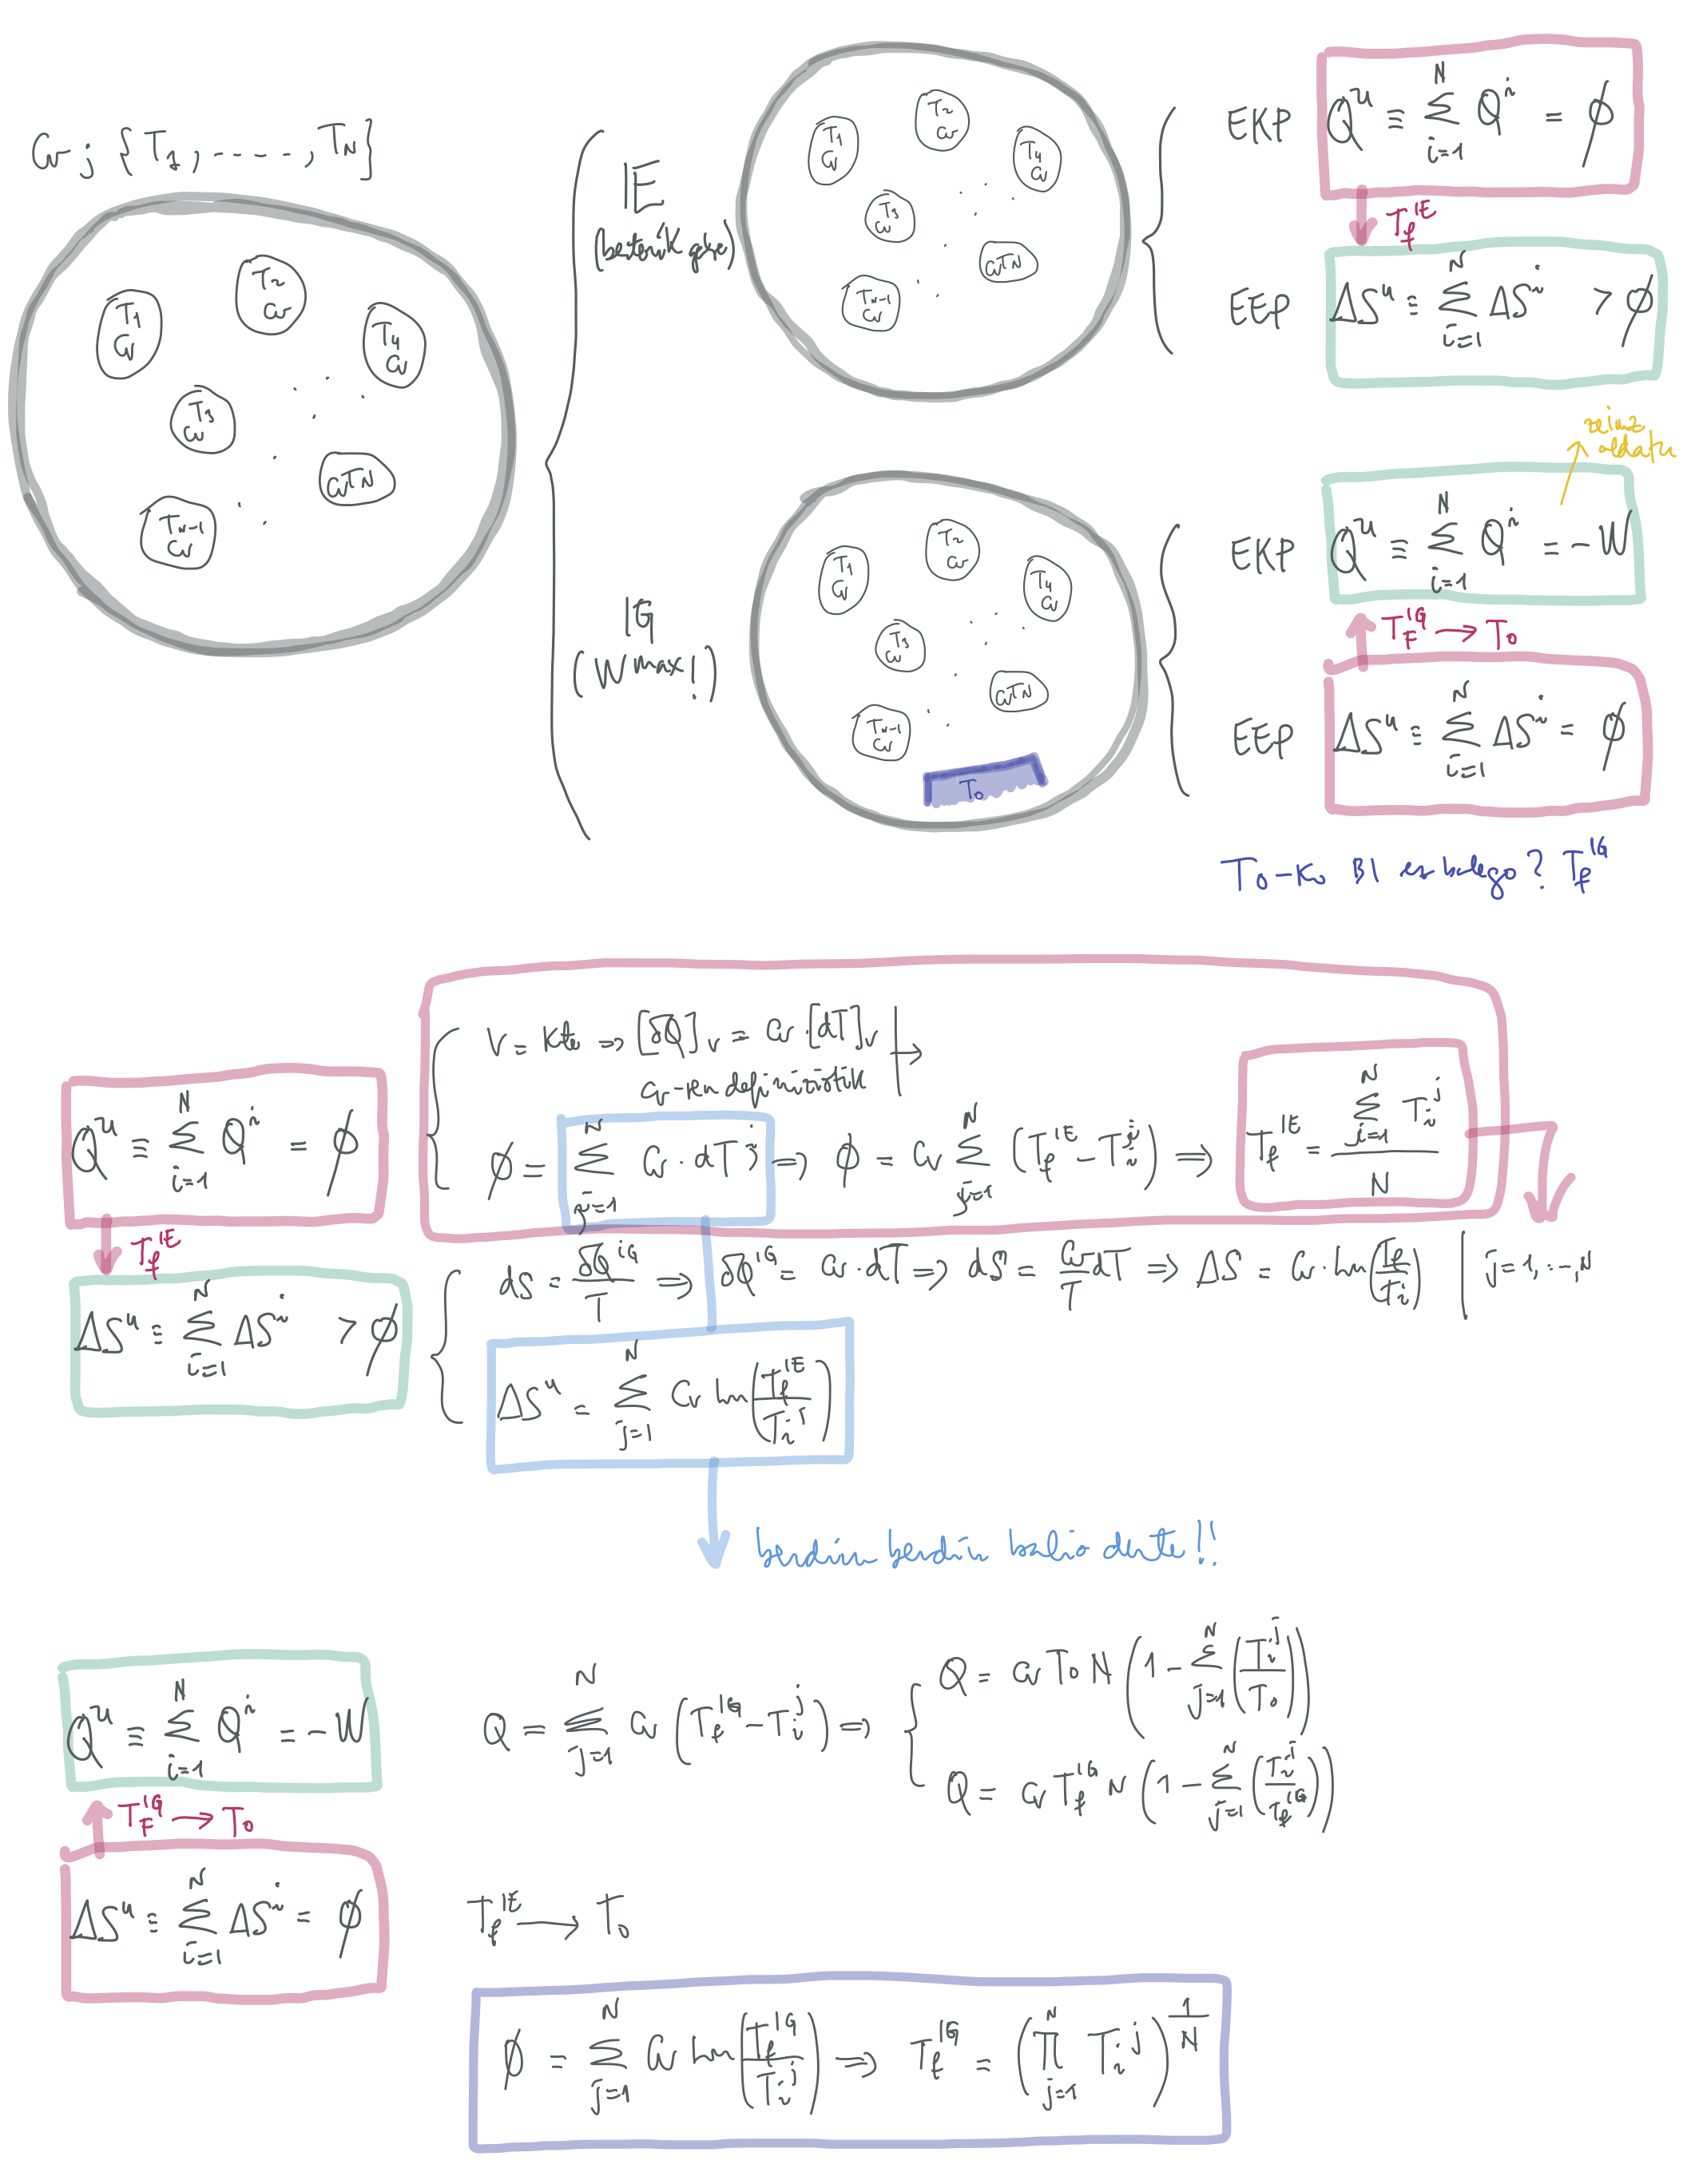 Cv ; { T1, ....., TN }
T1 Cv
T2 Cv
T4 Cv
T3 Cv
Cv TN
TN-1 Cv
IE
(besterik gabe)
T1 Cv
T2 Cv
T4 Cv
T3 Cv
Cv TN
TN-1 Cv
EKP Q^u ≡ Σ_{i=1}^{N} Q^i = ∅
T_f^{IE}
EEP ΔS^u ≡ Σ_{i=1}^{N} ΔS^i > ∅
IG
(W^max!)
T1 Cv
T2 Cv
T4 Cv
T3 Cv
Cv TN
TN-1 Cv
T0
zeinuz aldatu
EKP Q^u ≡ Σ_{i=1}^{N} Q^i = -W
T_F^{IG} → T0
EEP ΔS^u ≡ Σ_{i=1}^{N} ΔS^i = ∅
T0-ko BI ez balego? T_f^{IG}
V = kte ⇒ [δQ]_V = Cv · [dT]_V
Cv-ren definiziotik
Q^u ≡ Σ_{i=1}^{N} Q^i = ∅
∅ = Σ_{j=1}^{N} Cv · dT^j ⇒ ∅ = Cv Σ_{j=1}^{N} (T_f^{IE} - T_i^j) ⇒ T_f^{IE} = Σ_{j=1}^{N} T_i^j / N
T_f^{IE}
dS = δQ^{IG} / T ⇒ δQ^{IG} = Cv · dT ⇒ dS = Cv/T dT ⇒ ΔS = Cv · ln(Tf/Ti) | j=1, .-, N
ΔS^u ≡ Σ_{i=1}^{N} ΔS^i > ∅
ΔS^u = Σ_{j=1}^{N} Cv ln(T_f^{IE} / T_i^j)
berdin berdin balio dute!!
Q^u ≡ Σ_{i=1}^{N} Q^i = -W
Q = Σ_{j=1}^{N} Cv (T_f^{IG} - T_i^j) ⇒
Q = Cv T0 N (1 - Σ_{j=1}^{N} (T_i^j / T0))
Q = Cv T_f^{IG} N (1 - Σ_{j=1}^{N} (T_i^j / T_f^{IG}))
T_F^{IG} → T0
ΔS^u ≡ Σ_{i=1}^{N} ΔS^i = ∅
T_f^{IE} → T0
∅ = Σ_{j=1}^{N} Cv ln(T_f^{IG} / T_i^j) ⇒ T_f^{IG} = (Π_{j=1}^{N} T_i^j)^{1/N}